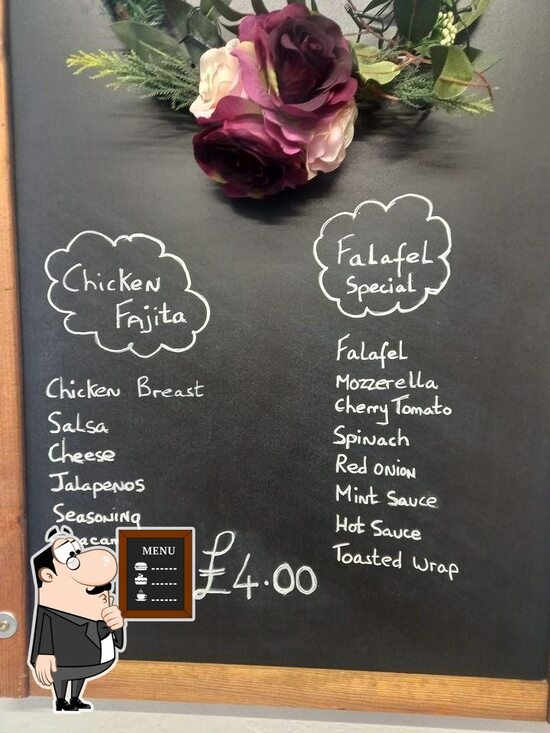 Chicken
Fajita
Chicken Breast
Salsa
Cheese
Jalapenos
Seasoning
Falafel
Special
Falafel
Mozzerella
Cherry Tomato
Spinach
Red onion
Mint Sauce
Hot Sauce
Toasted Wrap
£4.00
MENU